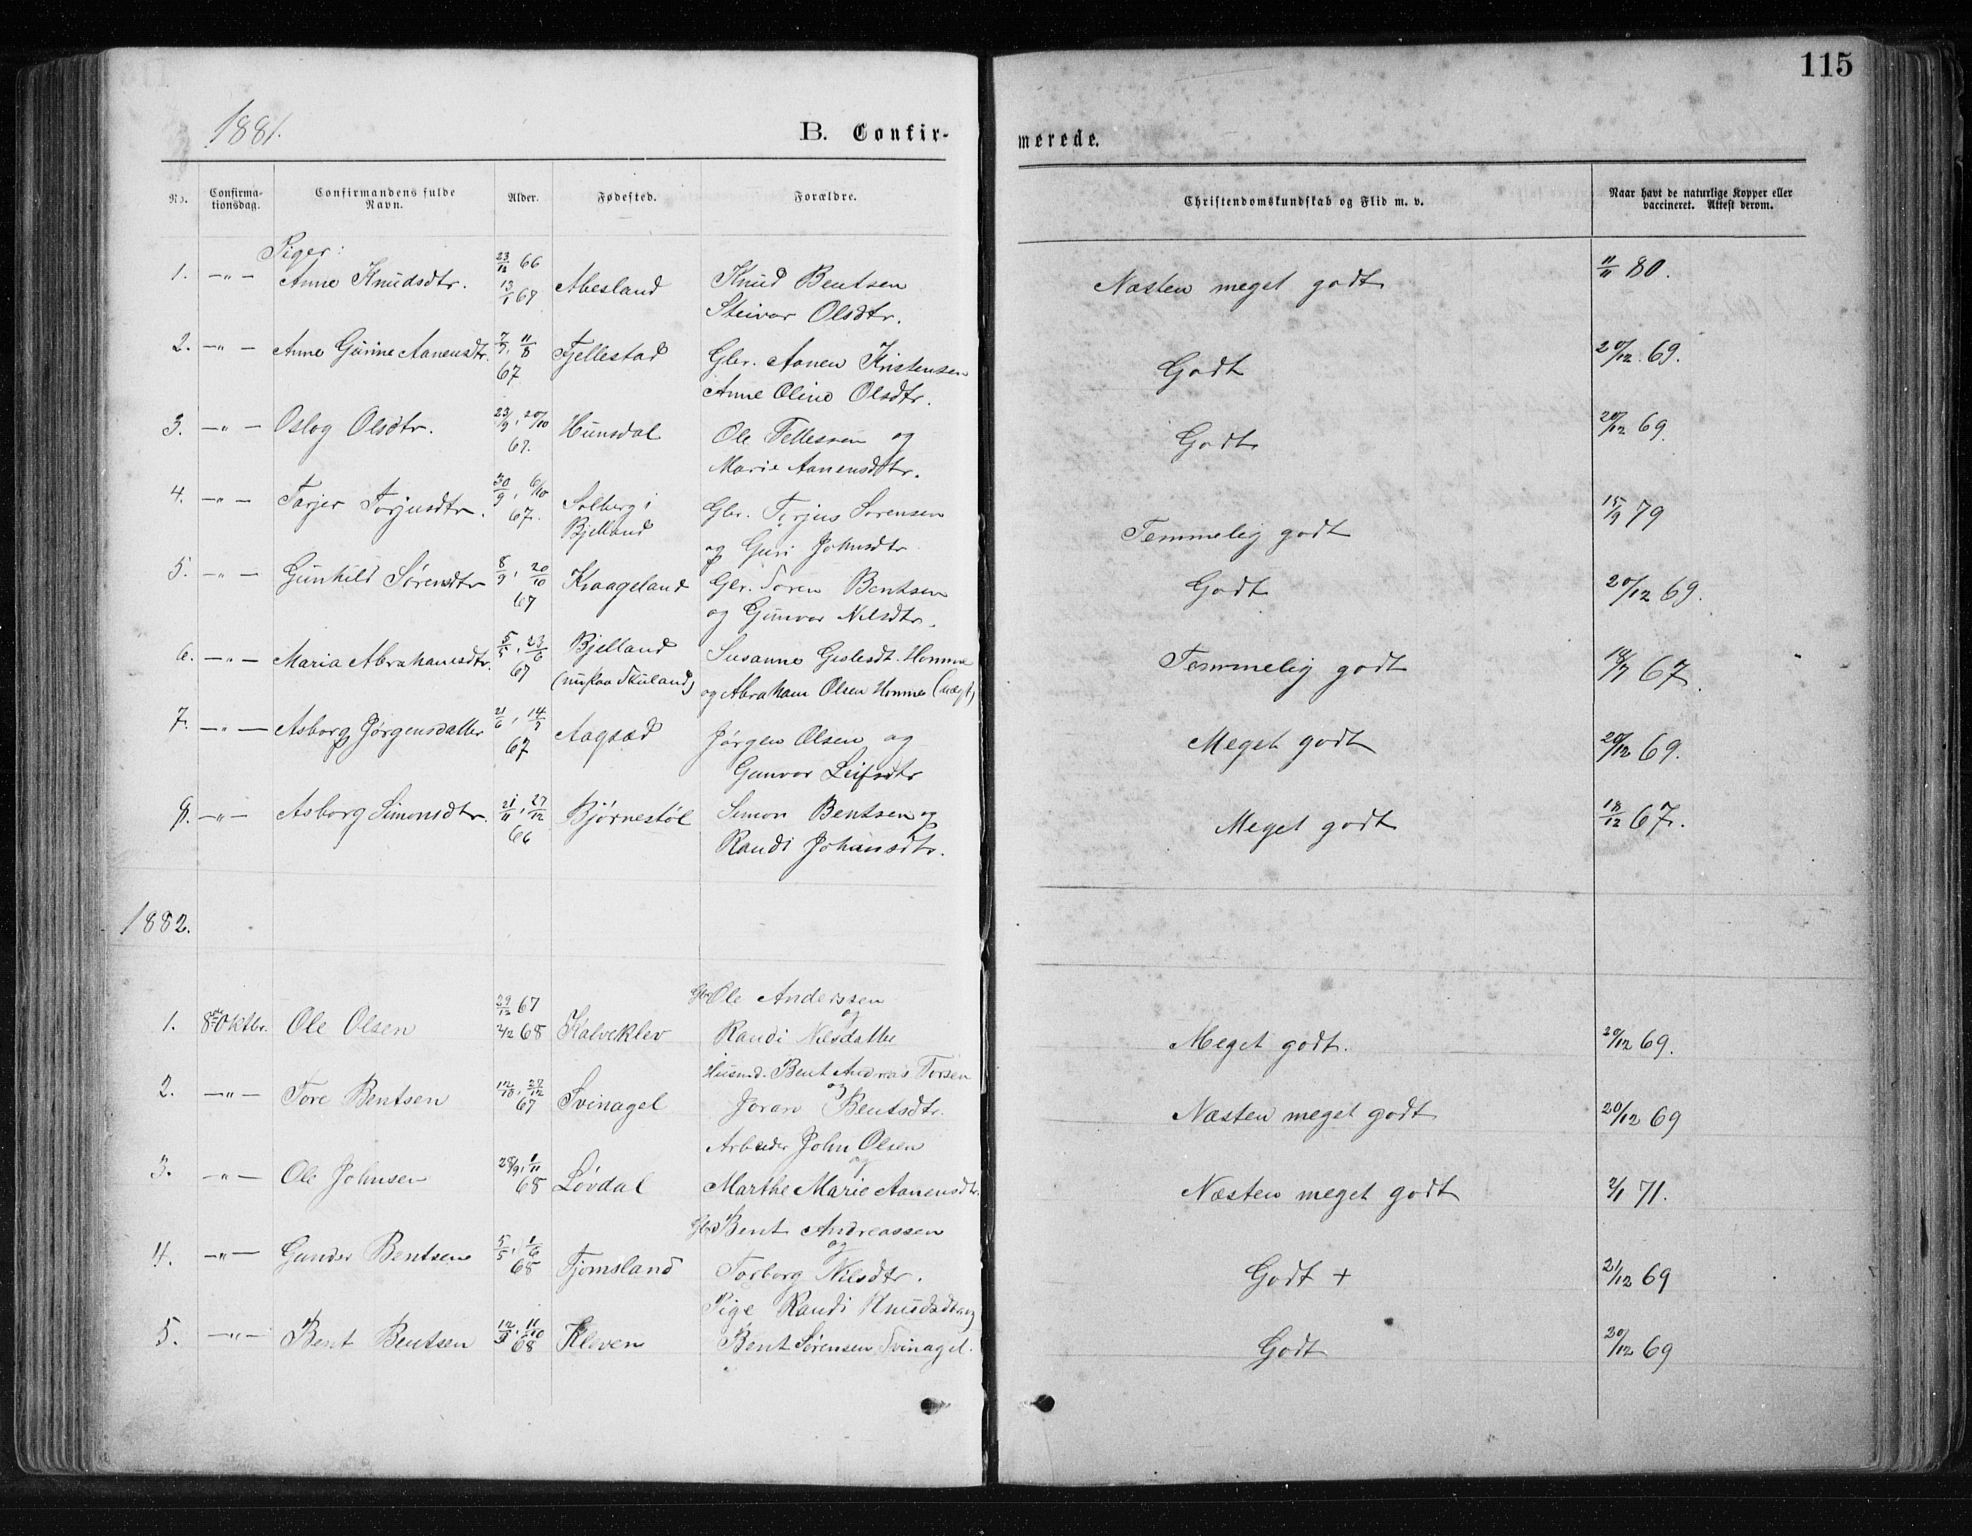 115
1881.
B. Confir-
merede.
No.
Confirma-
tionsdag.
Confirmandens fulde
Navn.
Alder.
Fødested.
Forældre.
Christendomskundskab og Flid m. v.
Naar havt de naturlige Kopper eller
vaccineret. Attest derom.
Piger:
1. —"— Anne Knudsdtr. 23/12 66 13/1 67 Abesland Knud Bentsen
Steivor Olsdtr.
Næsten meget godt 11/11 80.
2. —"— Anne Gurine Aanensdtr. 7/7, 11/8 67 Fjellestad Gbr. Aanen Kristensen
Anne Oline Olsdtr.
Godt 20/12 69.
3. —"— Oslog Olsdtr. 23/9, 20/10 67. Hunsdal Ole Tellessen og
Marie Aanensdtr.
Godt 20/12 69.
4. —"— Tarjer Torjusdtr. 30/9, 6/10 67. Solberg i
Bjelland
Gbr. Terjus Sorensen
og Guri Johnsdtr
Temmelig godt 15/9 79
5. —"— Gunhild Sørensdtr 8/9, 20/10 67 Kraageland Gbr. Soren Bentsen
og Gunvor Nilsdtr.
Godt 20/12 69.
6. —"— Maria Abrahamsdtr. 5/5, 23/6 67 Bjelland
(nu paa Skuland)
Susanne Gislesdt. Homme
og Abraham Olsen Homme (uægt)
Temmelig godt 67.
7. —"— Asborg Jørgensdatter 21/6, 14/7 67 Aagsæd Jørgen Olsen og
Gunvor Leifsdtr
Meget godt 20/12 69.
8. —"— Asborg Simonsdtr. 21/11, 27/12 66 Bjørnestøl Simon Bentsen og
Randi Johansdtr.
Meget godt 18/12 67.
1882.
1. 8de Oktbr. Ole Olsen 29/12 67 2/2 68 Kalveklev Gbr. Ole Anderssen
og
Randi Nilsdatter
Meget godt. 20/12 69.
2. —"— Tore Bentsen 12/10, 27/12 67 Svinagel Husmd. Bent Andreas Torsen
og
Joran Bentsdtr.
Næsten meget godt 20/12 69
3. —"— Ole Johnsen 28/9, 1/11 68 Løvdal Arbeider John Olsen
og
Marthe Marie Aanensdtr.
Næsten meget godt 2/1 71.
4. —"— Gunder Bentsen 5/5, 1/6 68 Tjomsland Gbr. Bent Andreassen
og
Torborg Nilsdtr.
Godt + 21/12 69
5. —"— Bent Bentsen 11/10 68 Kleven Pige Randi Knudsdtr og
Bent Sørensen Svinagel.
Godt 20/12 69